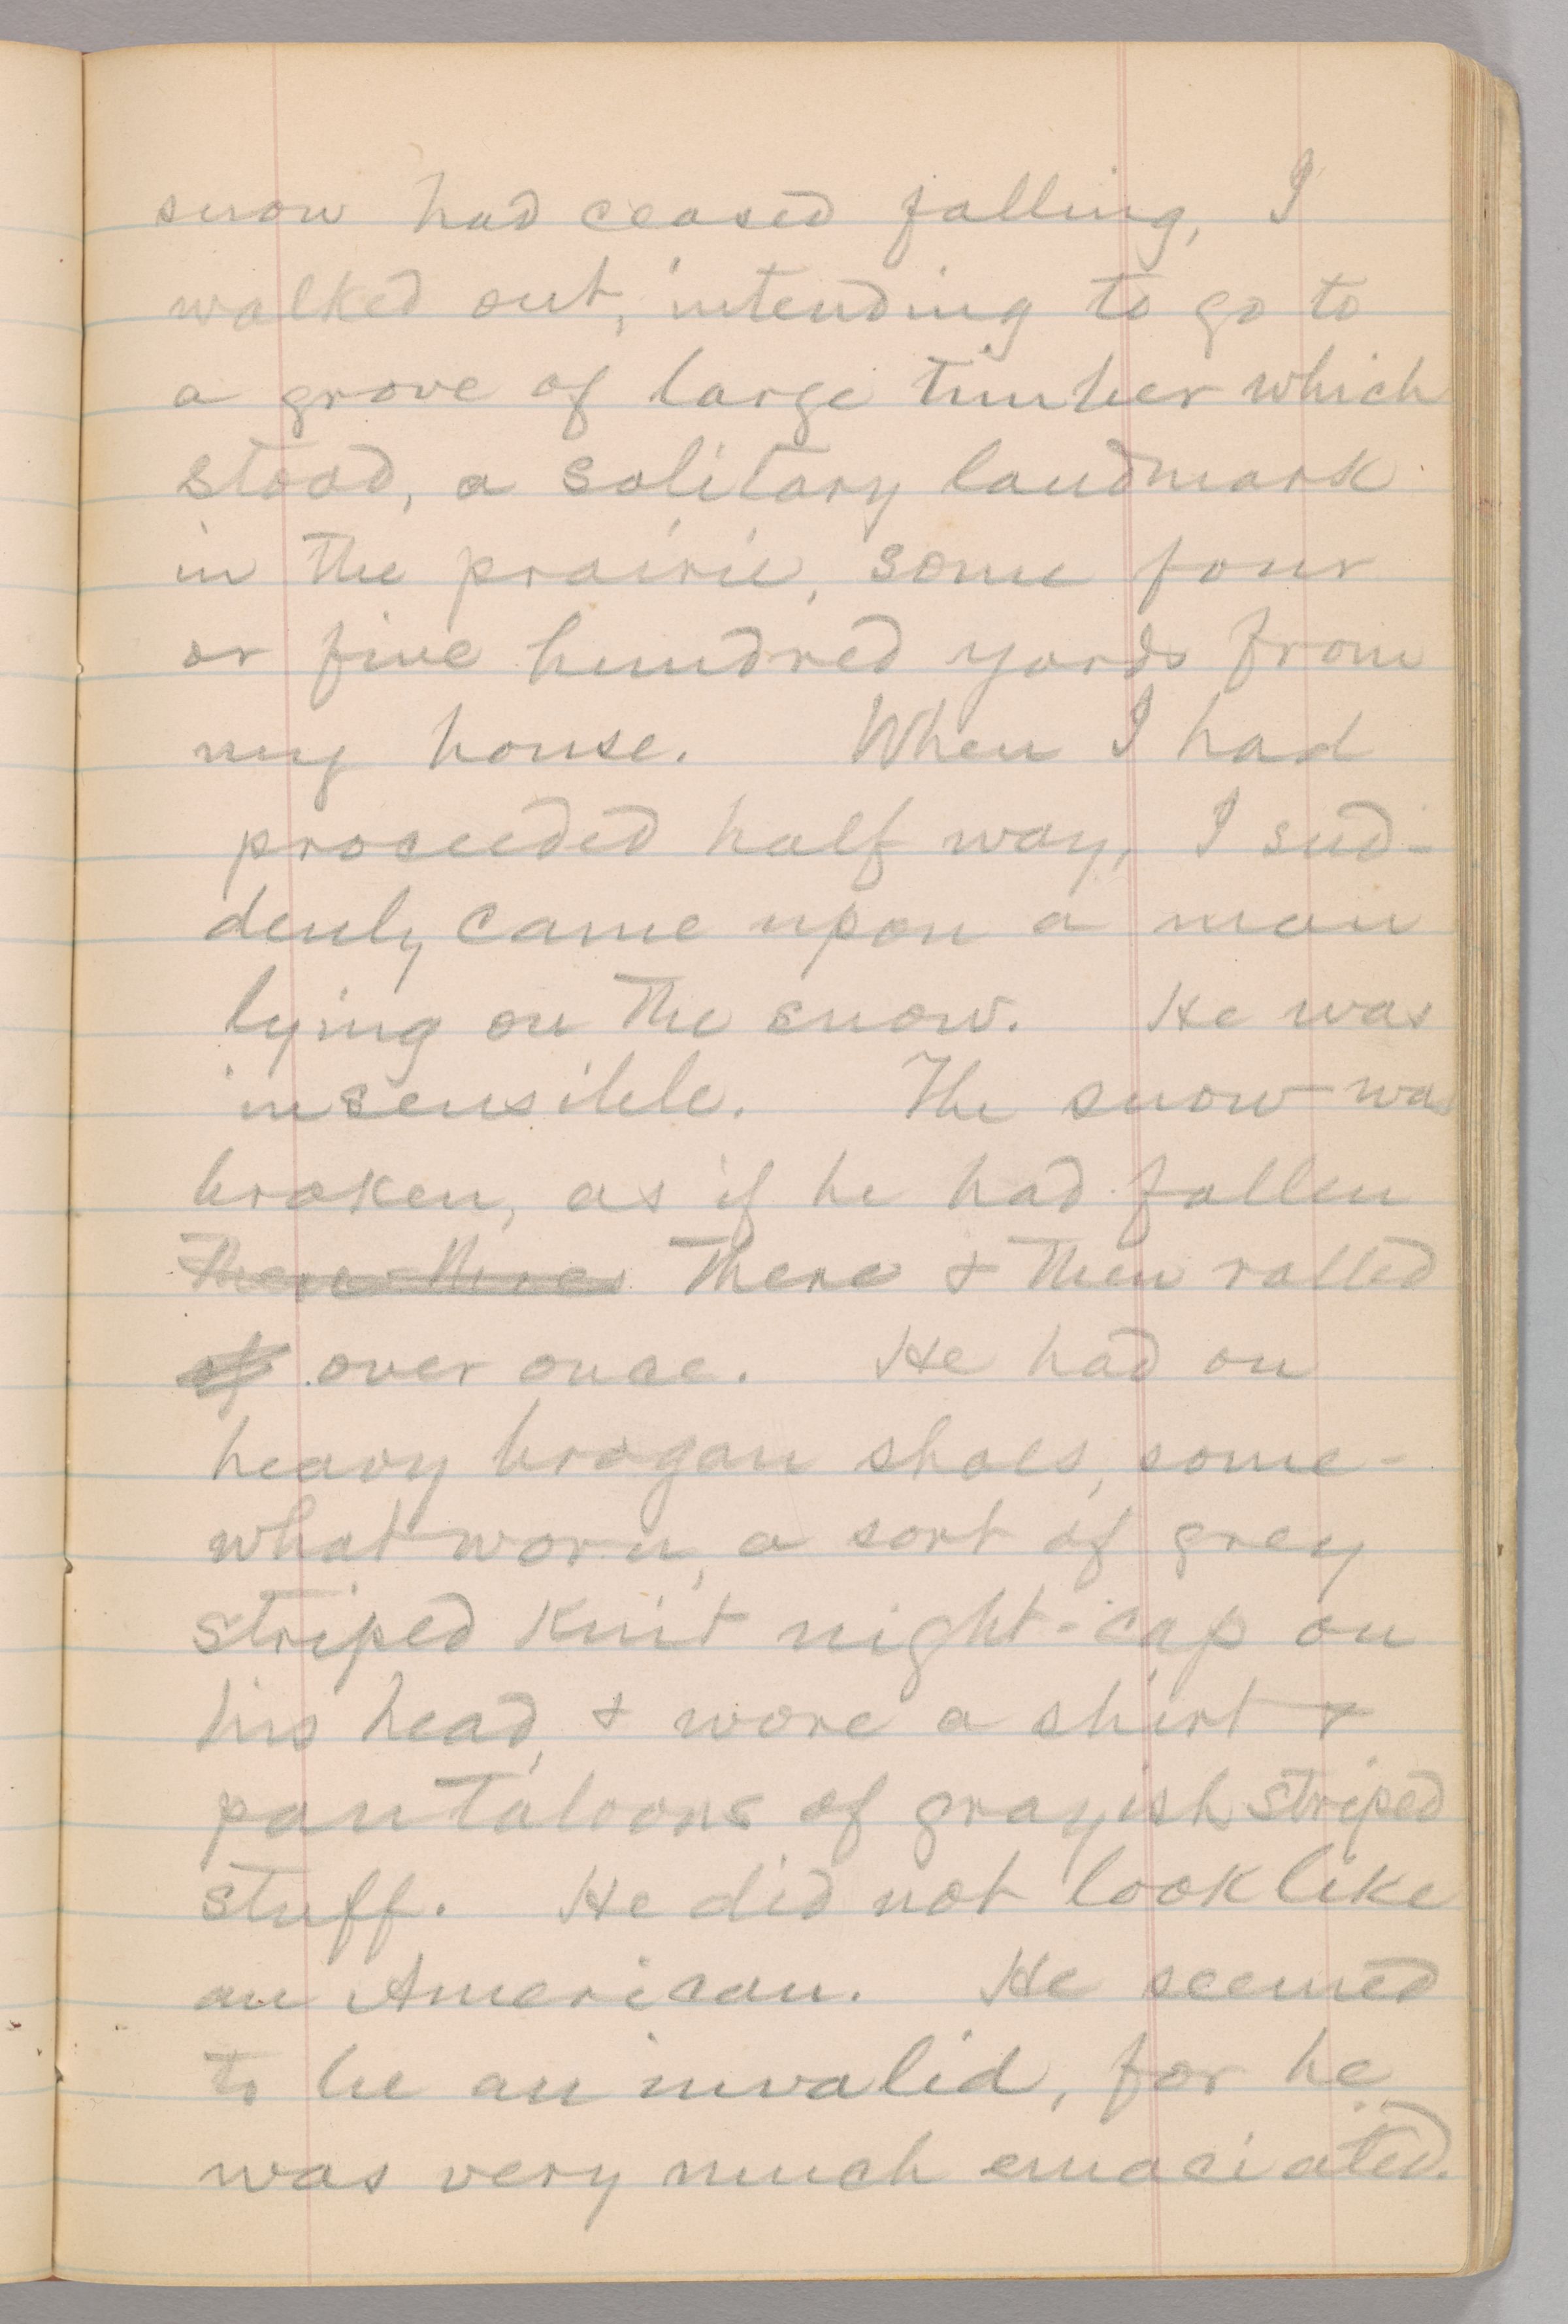 snow had ceased falling, I
walked out, intending to go to
a grove of large timber which
stood, a solitary landmark
in the prairie, some four
or five hundred yards from
my house. When I had
proceeded half way, I sud-
denly came upon a man
lying on the snow. He was
insensible. The snow was
broken, as if he had fallen
there & then rolled
over once. He had on
heavy brogan shoes, some-
what worn, a sort of grey
striped knit night-cap on
his head, & wore a shirt &
pantaloons of grayish striped
stuff. He did not look like
an American. He seemed
to be an invalid, for he
was very much emaciated.